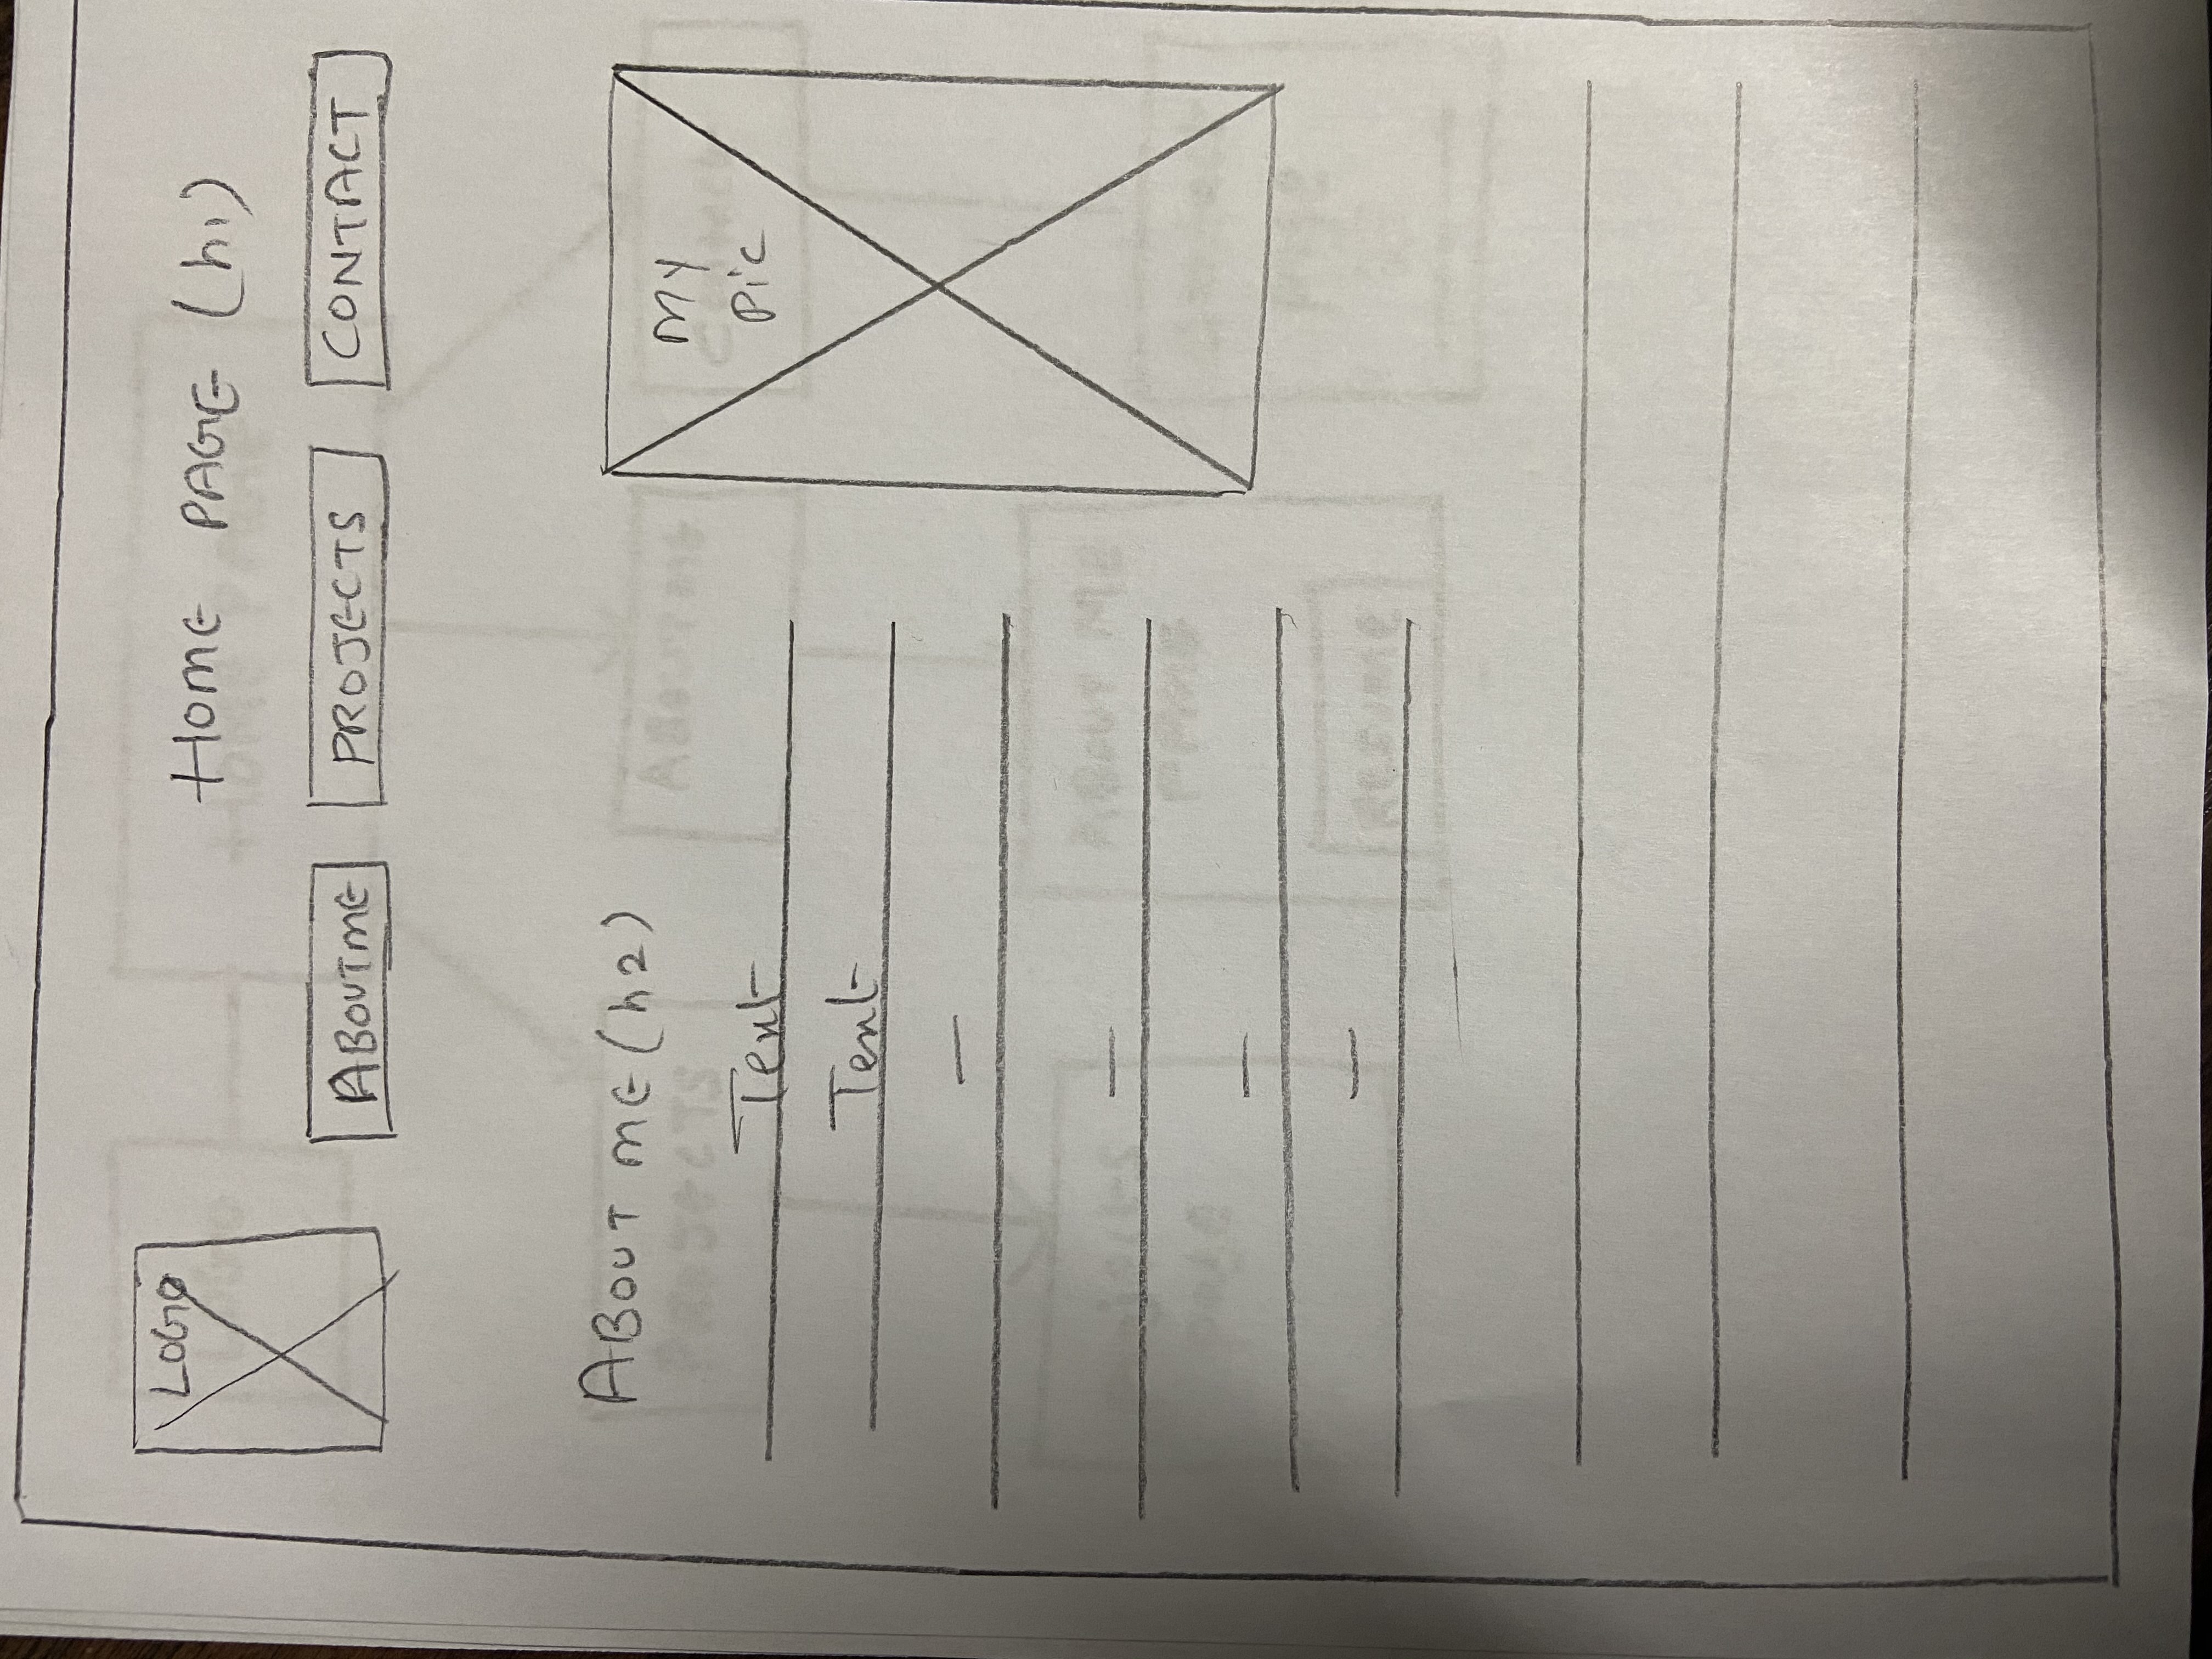 LOGO
HOME PAGE (h1)
ABOUTME
PROJECTS
CONTACT
ABOUT ME (h2)
My
Pic
Text
Text